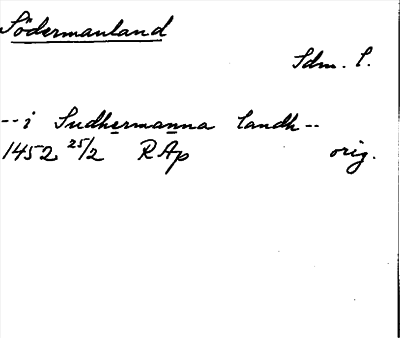 Södermanland
Sdm. l.
-- i Sudhermanna landh --
1452 25/2 RAp orig.